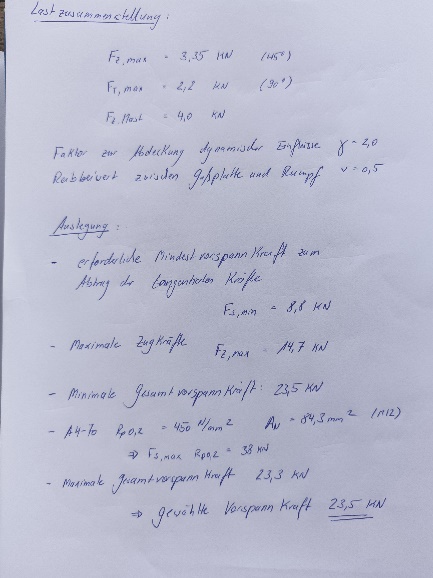 Lastzusammenstellung:
Fz,max = 3,35 KN (45°)
FT,max = 2,2 KN (90°)
= 4,0 KN
Faktor zur Abdeckung dynamischer Einflüsse γ = 2,0
Reibbeiwert zwischen Gußplatte und Rumpf ν = 0,5
Auslegung:
- erforderliche Mindestvorspannkraft zum
Abtrag der tangentialen Kräfte
Fs,min = 8,8 KN
- Maximale Zugkräfte Fz,max = 14,7 KN
- Minimale Gesamtvorspannkraft: 23,5 KN
- A4-70 Rp0,2 = 450 N/mm² AN = 84,3 mm² (M12)
⇒ Fs,max Rp0,2 = 38 KN
- Maximale Gesamtvorspannkraft 23,3 KN
⇒ gewählte Vorspannkraft 23,5 KN